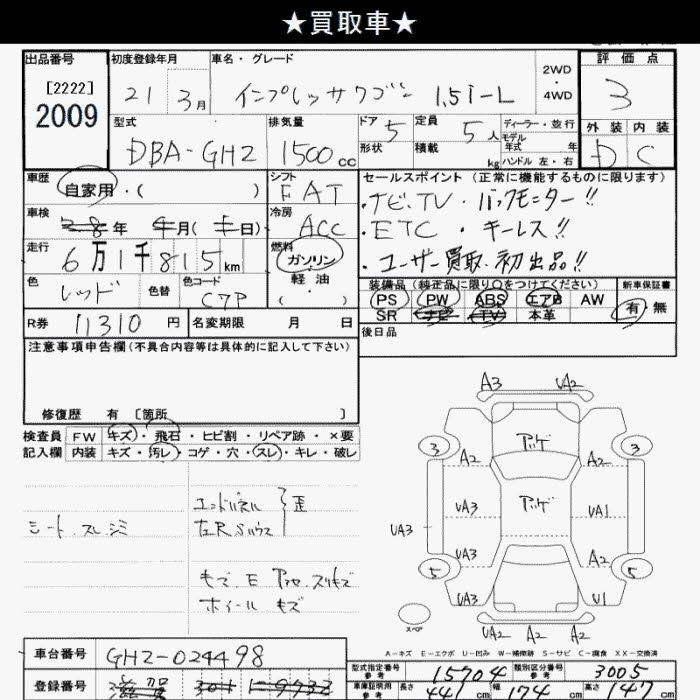 ★買取車★
出品番号
[2222]
2009
初度登録年月
21 3月
車名・グレード
インプレッサワゴン 1.5i-L
2WD
・
4WD
評価点
3
外装 内装
D C
型式
DBA-GH2
排気量
1500cc
ドア 5
形状
定員 5人
積載 kg
ディーラー・並行
モデル
年式 年
ハンドル 左・右
車歴
自家用・( )
シフト
FAT
車検
年 月( 日)
冷房
ACC
走行
6万1千815km
燃料
ガソリン
軽油
( ・ )
色
レッド
色替
色コード
C7P
R券 11310円
名変期限 月 日
セールスポイント(正常に機能するものに限ります)
・ナビ、TV ・バックモニター!!
・ETC ・キーレス!!
・ユーザー買取、初出品!!
装備品(純正品に限り○をつけてください)
新車保証書
PS PW ABS エアB AW
SR ナビ TV 本革
有・無
後日品
注意事項申告欄(不具合内容等は具体的に記入して下さい)
修復歴 有 [箇所 ]
検査員
記入欄
FW キズ・飛石・ヒビ割・リペア跡・×要
内装 キズ・汚レ・コゲ・穴・スレ・キレ・破レ
シート スレ シミ
エンドパネル
左Rハウス
歪
モズ E アセ スリキズ
ホイール キズ
A3 UA2
アッゲ
3 3
A2 A2
アッゲ
UA3 UA3 UA1
UA3 A2
5 5
UA3 U1
UA2 A2 A2
スペア
A-キズ E-エクボ U-凹み W-補修跡 S-サビ C-腐食 XX-交換済
車台番号 GH2-024498
登録番号
型式指定番号
参考
15704
類別区分番号
参考
3005
車庫証明用
参考
長さ 441cm 幅 174cm 高さ 147cm